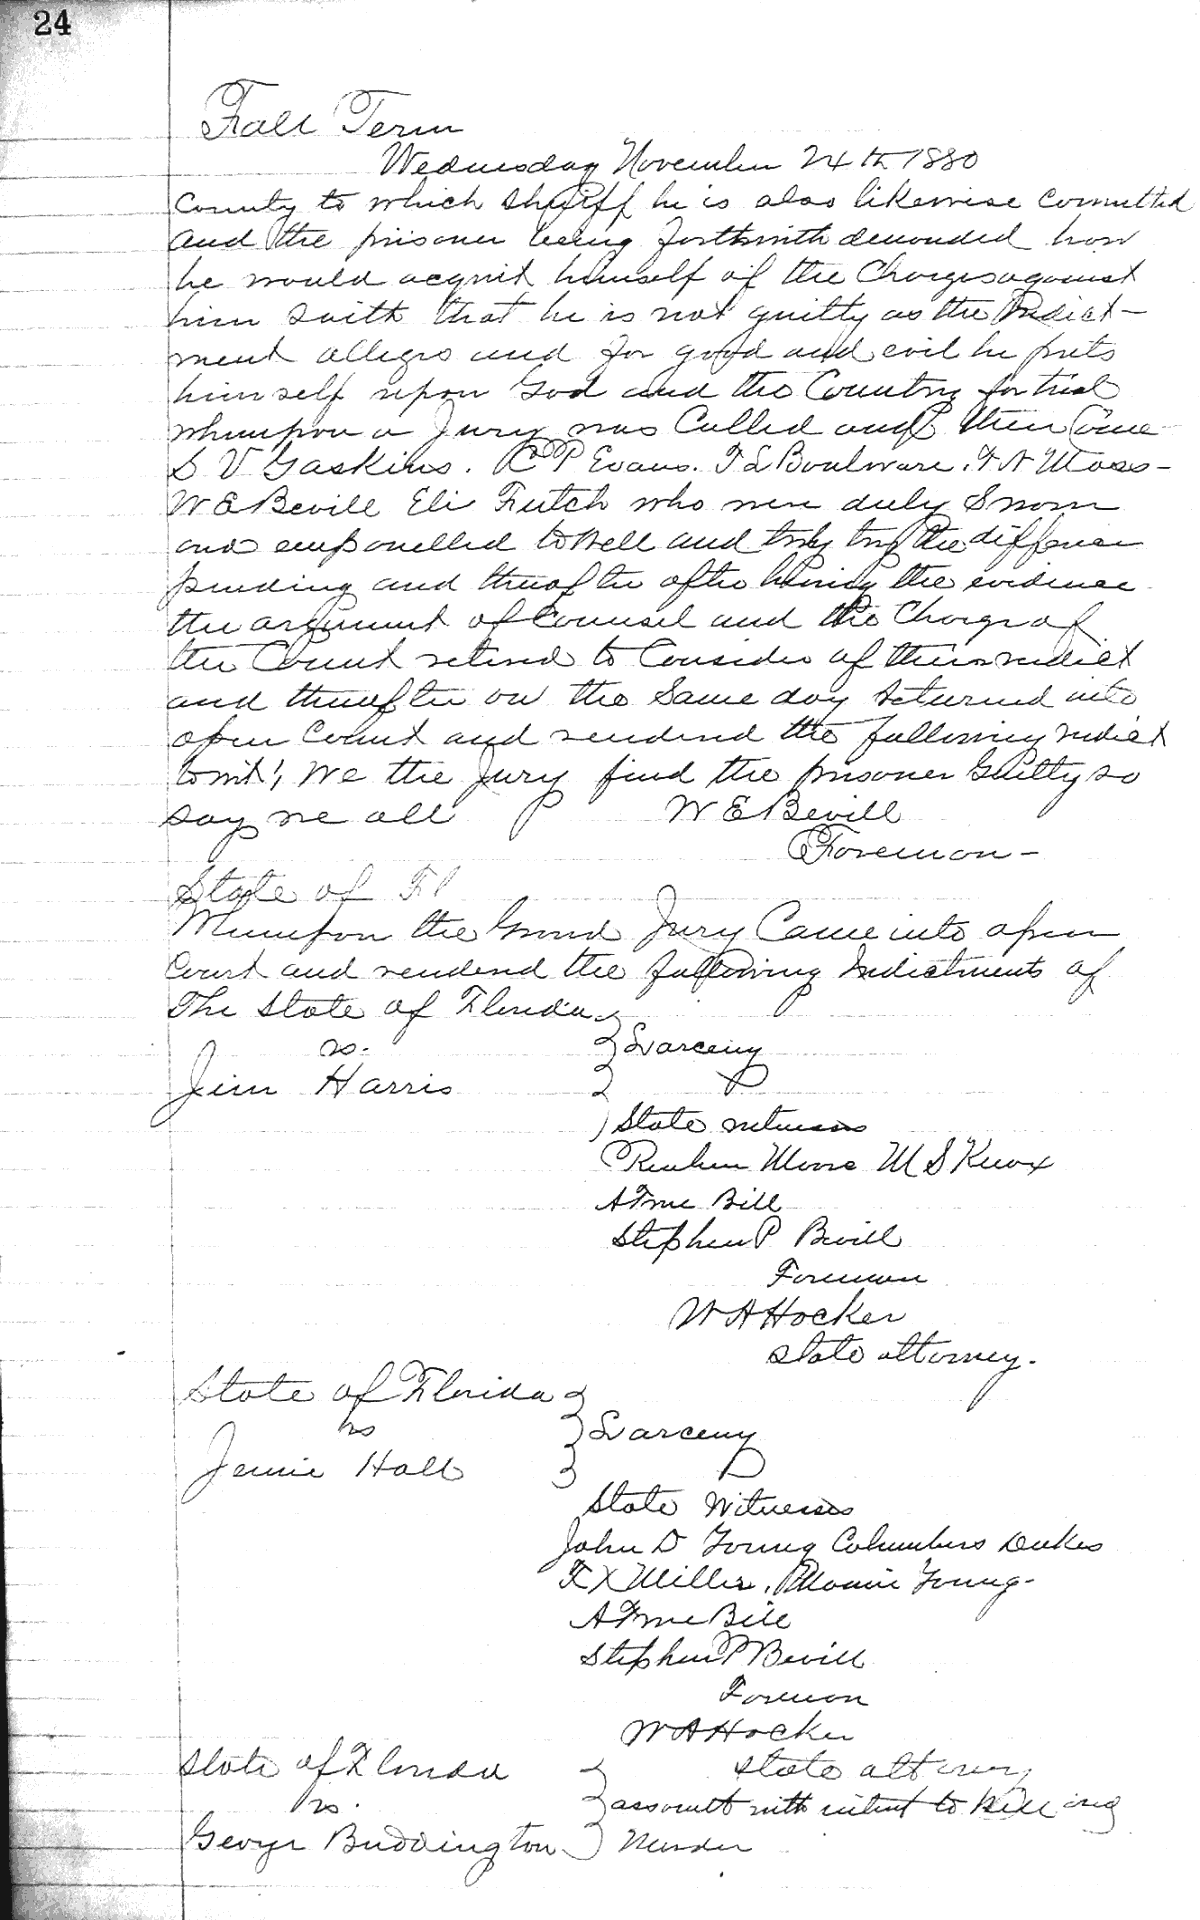 24
Fall Term
Wednesday November 24th 1880
County to which Sheriff he is also likewise committed
and the prisoner being forthwith demanded how
he would acquit himself of the Charges against
him saith that he is not guilty as the Indict-
ment alleges and for good and evil he puts
himself upon God and the Country for trial
whereupon a Jury was Called and then Came
S V Gaskins. R P Evans. F L Boulware. F N Moss-
W E Bevill Eli Futch who were duly Sworn
and empanelled to well and truly try the difference
pending and thereafter after hearing the evidence
the argument of Counsel and the Charge of
the Court retired to Consider of their verdict
and thereafter on the Same day returned into
open Court and rendered the following verdict
towit, We the Jury find the prisoner Guilty so
say we all W E Bevill
Foreman-
State of Fl
Whereupon the Grand Jury Came into open
Court and rendered the following Indictments of
The State of Florida
vs.
Larceny
Jim Harris
State witnesses
Reuben Moore M S Knox
A True Bill
Stephen P Bevill
Foreman
W A Hocker
State attorney.
State of Florida
vs
Larceny
Jennie Hall
State Witnesses
John D Young Columbus Dukes
F X Miller, Young-
A True Bill
Stephen P Bevill
Foreman
W A Hocker
State attorney
State of Florida
vs.
assault with intent to Kill and
George Buddington Murder